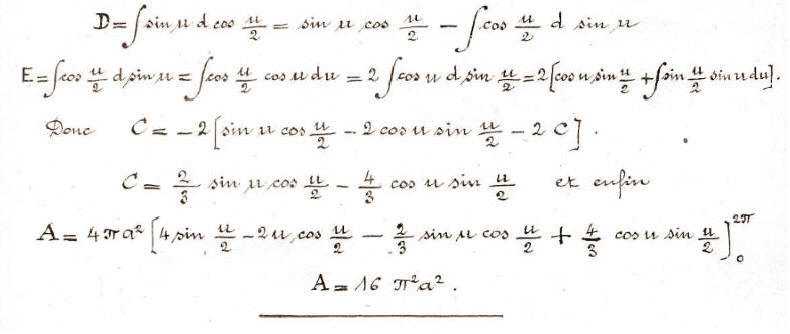 D = ∫ sin u d cos u/2 = sin u cos u/2 − ∫ cos u/2 d sin u
E = ∫ cos u/2 d sin u = ∫ cos u/2 cos u du = 2 ∫ cos u d sin u/2 = 2 [cos u sin u/2 + ∫ sin u/2 sin u du].
Donc C = −2 [sin u cos u/2 − 2 cos u sin u/2 − 2 C].
C = 2/3 sin u cos u/2 − 4/3 cos u sin u/2 et enfin
A = 4πa² [4 sin u/2 − 2u cos u/2 − 2/3 sin u cos u/2 + 4/3 cos u sin u/2]₀^2π
A = 16 π²a².